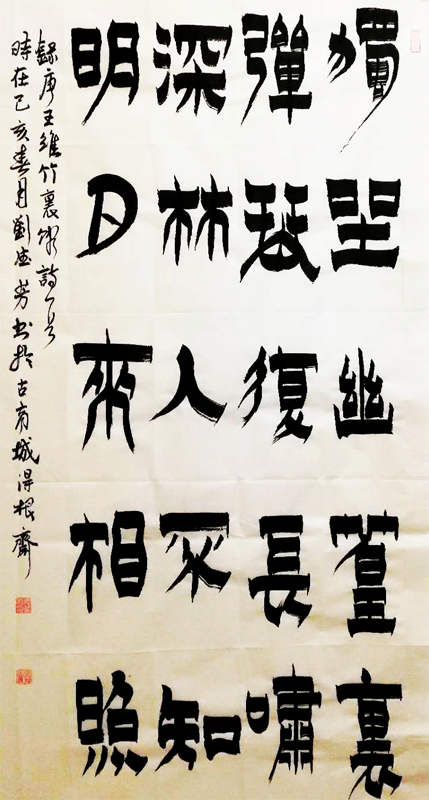 獨坐幽篁裏
彈琴復長嘯
深林人不知
明月來相照
錄唐王維竹裏館詩一首
時在己亥春月劉德芳書於古商城得根齋